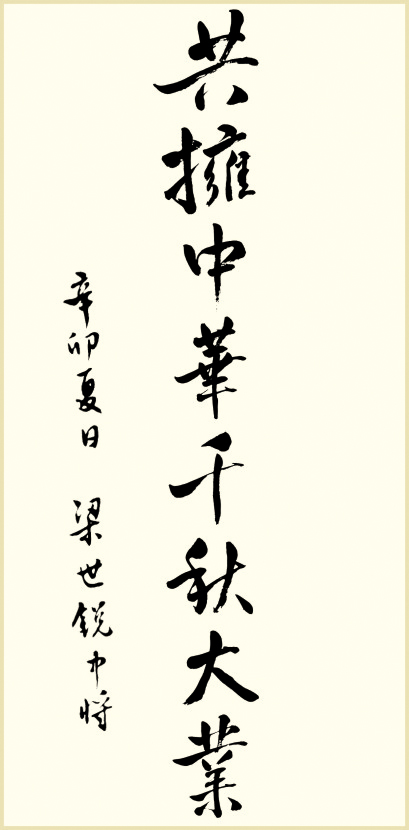 共擁中華千秋大業
辛卯夏日 梁世銳中將